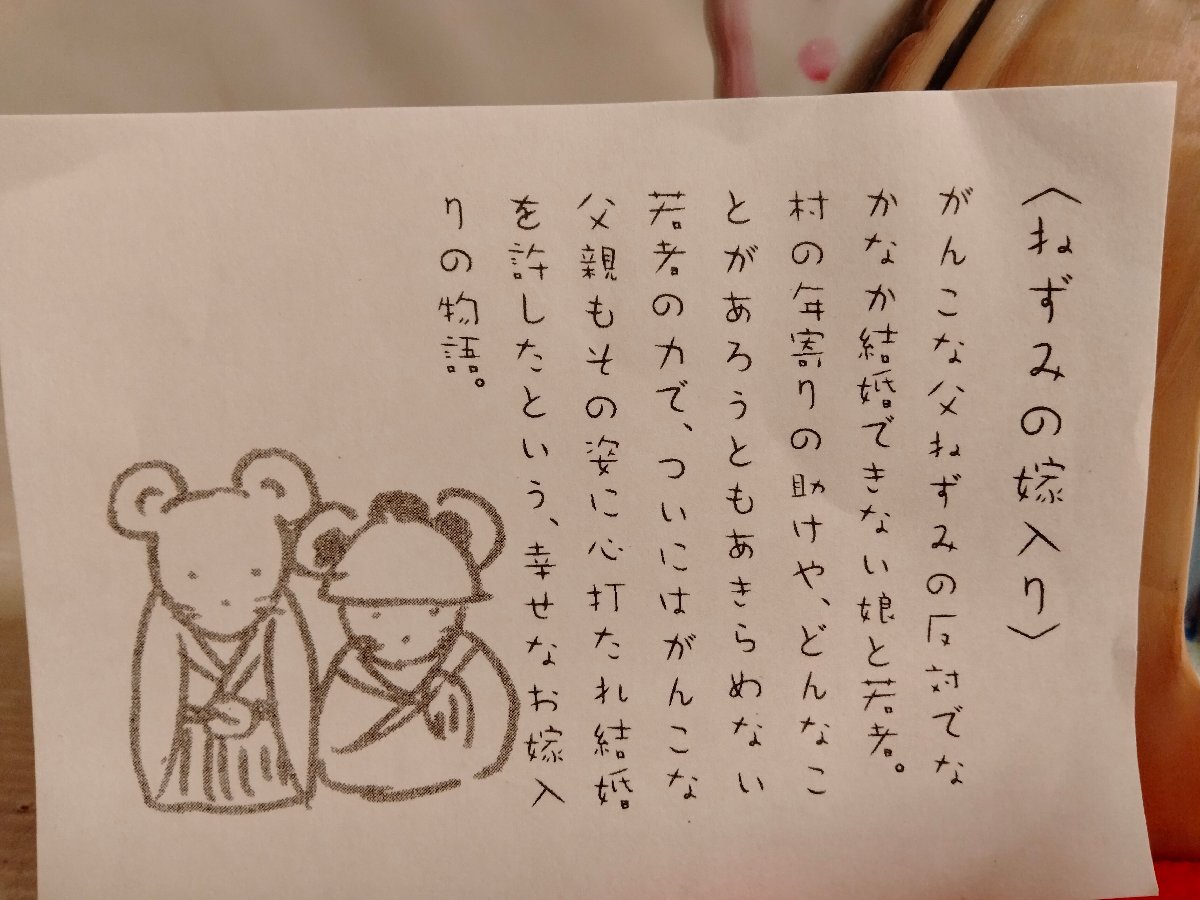 〈ねずみの嫁入り〉
がんこな父ねずみの反対でな
かなか結婚できない娘と若者。
村の年寄りの助けや、どんなこ
とがあろうともあきらめない
若者の力で、ついにはがんこな
父親もその姿に心打たれ結婚
を許したという、幸せなお嫁入
りの物語。